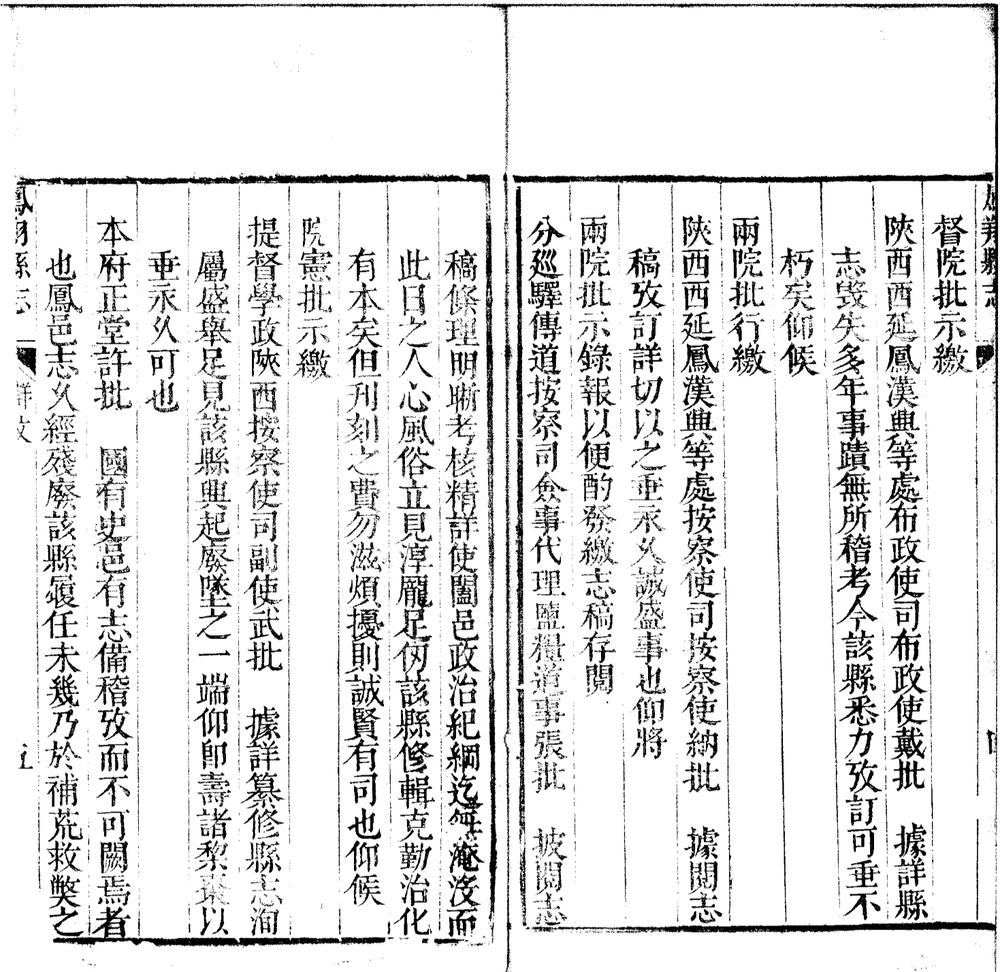 鳳翔縣志
督院批示繳
陝西西延鳳漢興等處布政使司布政使戴批　據詳縣
志毀失多年事蹟無所稽考今該縣悉力攷訂可垂不
朽矣仰候
兩院批行繳
陝西西延鳳漢興等處按察使司按察使納批　據閱志
稿攷訂詳切以之垂永久誠盛事也仰將
兩院批示錄報以便酌發繳志稿存閱
分巡驛傳道按察司僉事代理鹽糧道事張批　披閱志
稿條理明晰考核精詳使闔邑政治紀綱迄無淹沒而
此日之人心風俗立見淳龐足仞該縣修輯克勤治化
有本矣但刋刻之費勿滋煩擾則誠賢有司也仰候
院憲批示繳
提督學政陝西按察使司副使武批　據詳纂修縣志洵
屬盛舉足見該縣興起廢墜之一端仰卽壽諸棃棗以
垂永久可也
本府正堂許批　國有史邑有志備稽攷而不可闕焉者
也鳳邑志久經殘廢該縣履任未幾乃於補荒救獘之
鳳翔縣志　詳文　五